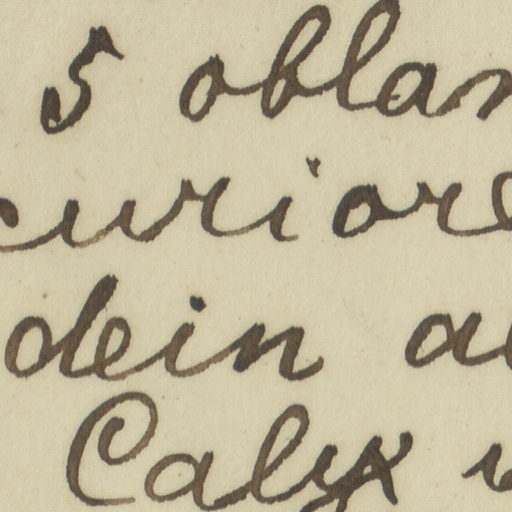 5 oblan
curiore
dein a
Calyx